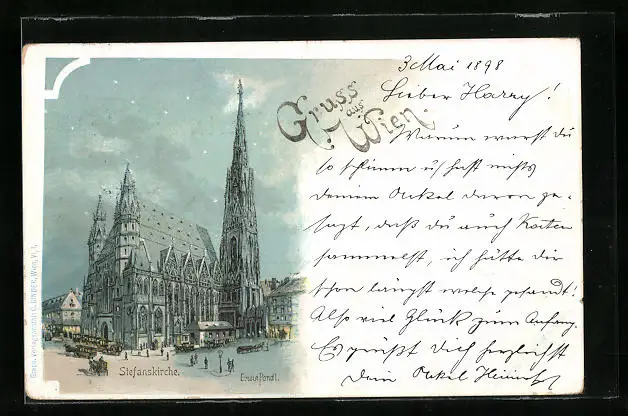 3 Mai 1898
Lieber Harry!
Gruss
aus
Wien.
Warum warst du
so schlimm u. hast nichts
deinem Onkel davon ge-
sagt, daß du auch Karten
sammelst, ich hätte dir
schon längst welche gesandt!
Also viel Glück zum Anfang.
Es grüßt Dich herzlichst
Dein Onkel Heinrich
Stefanskirche.
Erwin Pendl.
Wien, VI, 1.